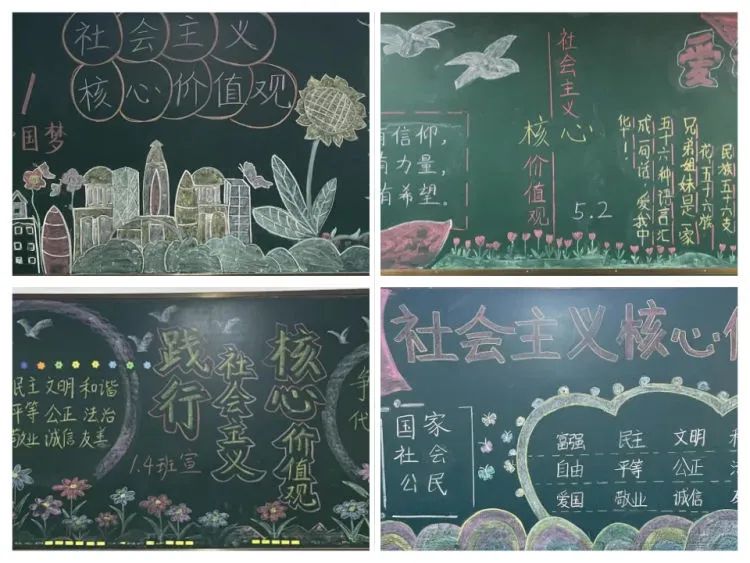 社会主义
核心价值观
国梦
社会主义
核心
价值观
5.2
有信仰，
有力量，
有希望。
爱
民族五十六支
花五十六族
兄弟姐妹是一家
五十六种语言汇
成一句话，爱我中
民主 文明 和谐
平等 公正 法治
敬业 诚信 友善
践行
社会主义
核心价值观
1.4班宣
争
代
社会主义核心
国家
社会
公民
富强 民主 文明
自由 平等 公正
爱国 敬业 诚信